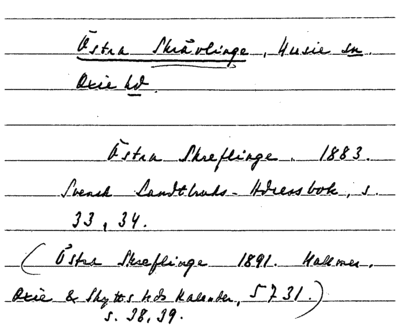 Östra Skrävlinge, Husie sn.
Oxie hd.
Östra Skreflinge. 1883.
Svensk Landtbruks-Adressbok, s.
33, 34.
(Östra Skreflinge 1891. Malmer,
Oxie & Skytts hds Kalender, 5731.)
s. 38, 39.